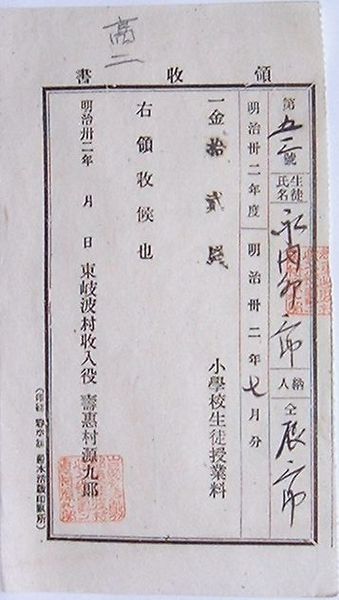 高二
領收書
第五三號 生徒氏名 永田卯三郎 納人 仝 辰三郎
明治卅二年度 明治卅二年七月分
一金拾貳錢 小學校生徒授業料
右領收候也
明治卅二年 月 日 東岐波村收入役 壽惠村源九郎